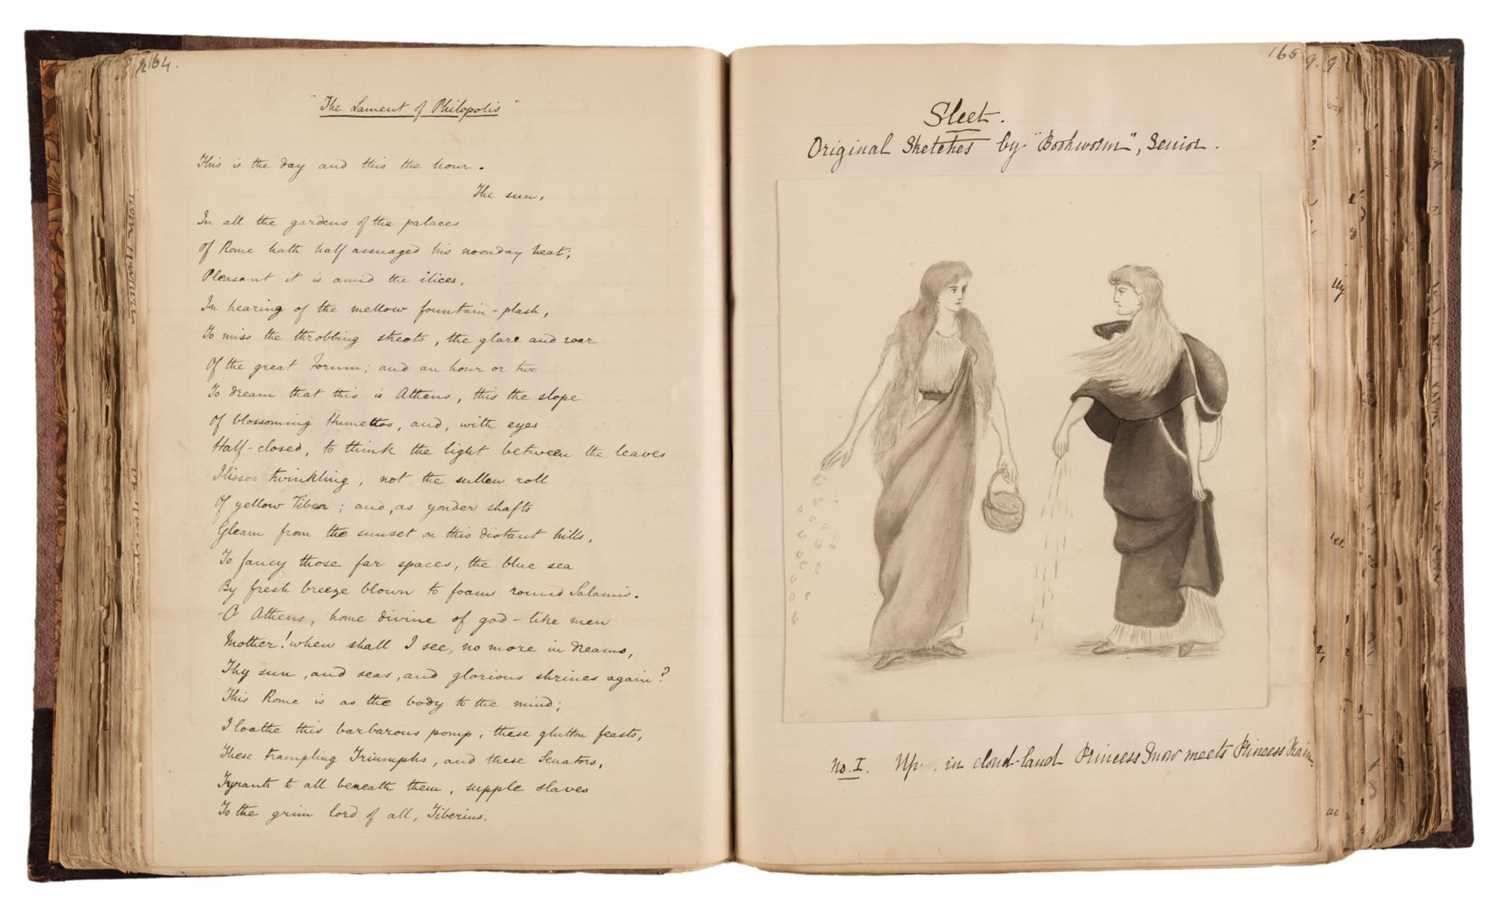 164.
"The Lament of Philopolis"
This is the day and this the hour.
The sun,
In all the gardens of the palaces
Of Rome hath half assuaged his noonday heat;
Pleasant it is amid the ilices,
In hearing of the mellow fountain-plash,
To miss the throbbing streets, the glare and roar
Of the great Forum; and an hour or two
To dream that this is Athens, this the slope
Of blossoming Humettos, and, with eyes
Half-closed, to think the light between the leaves
Ilissos twinkling, not the sullen roll
Of yellow Tiber; and, as yonder shafts
Gleam from the sunset on this distant hills,
To fancy those far spaces, the blue sea
By fresh breeze blown to foam round Salamis.
O Athens, home divine of god-like men
Mother! when shall I see, no more in dreams,
Thy sun, and seas, and glorious shrines again?
This Rome is as the body to the mind;
I loathe this barbarous pomp, these glutton feasts,
These trampling Triumphs, and these Senators,
Tyrants to all beneath them, supple slaves
To the grim lord of all, Tiberius.
165
Sleet.
Original Sketches by "Bookworm", Senior.
No. I. Up in cloud-land Princess Snow meets Princess Rain.